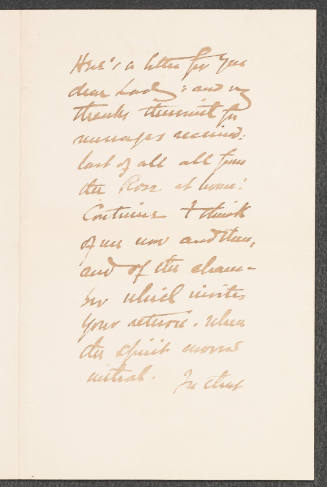 Here's a letter for you
dear Lady: and my
thanks therewith for
messages received:
last of all all from
the Rose at home!
Continue to think
of me now and then,
and of the cham-
ber which invites
your return. when
the spirit moves